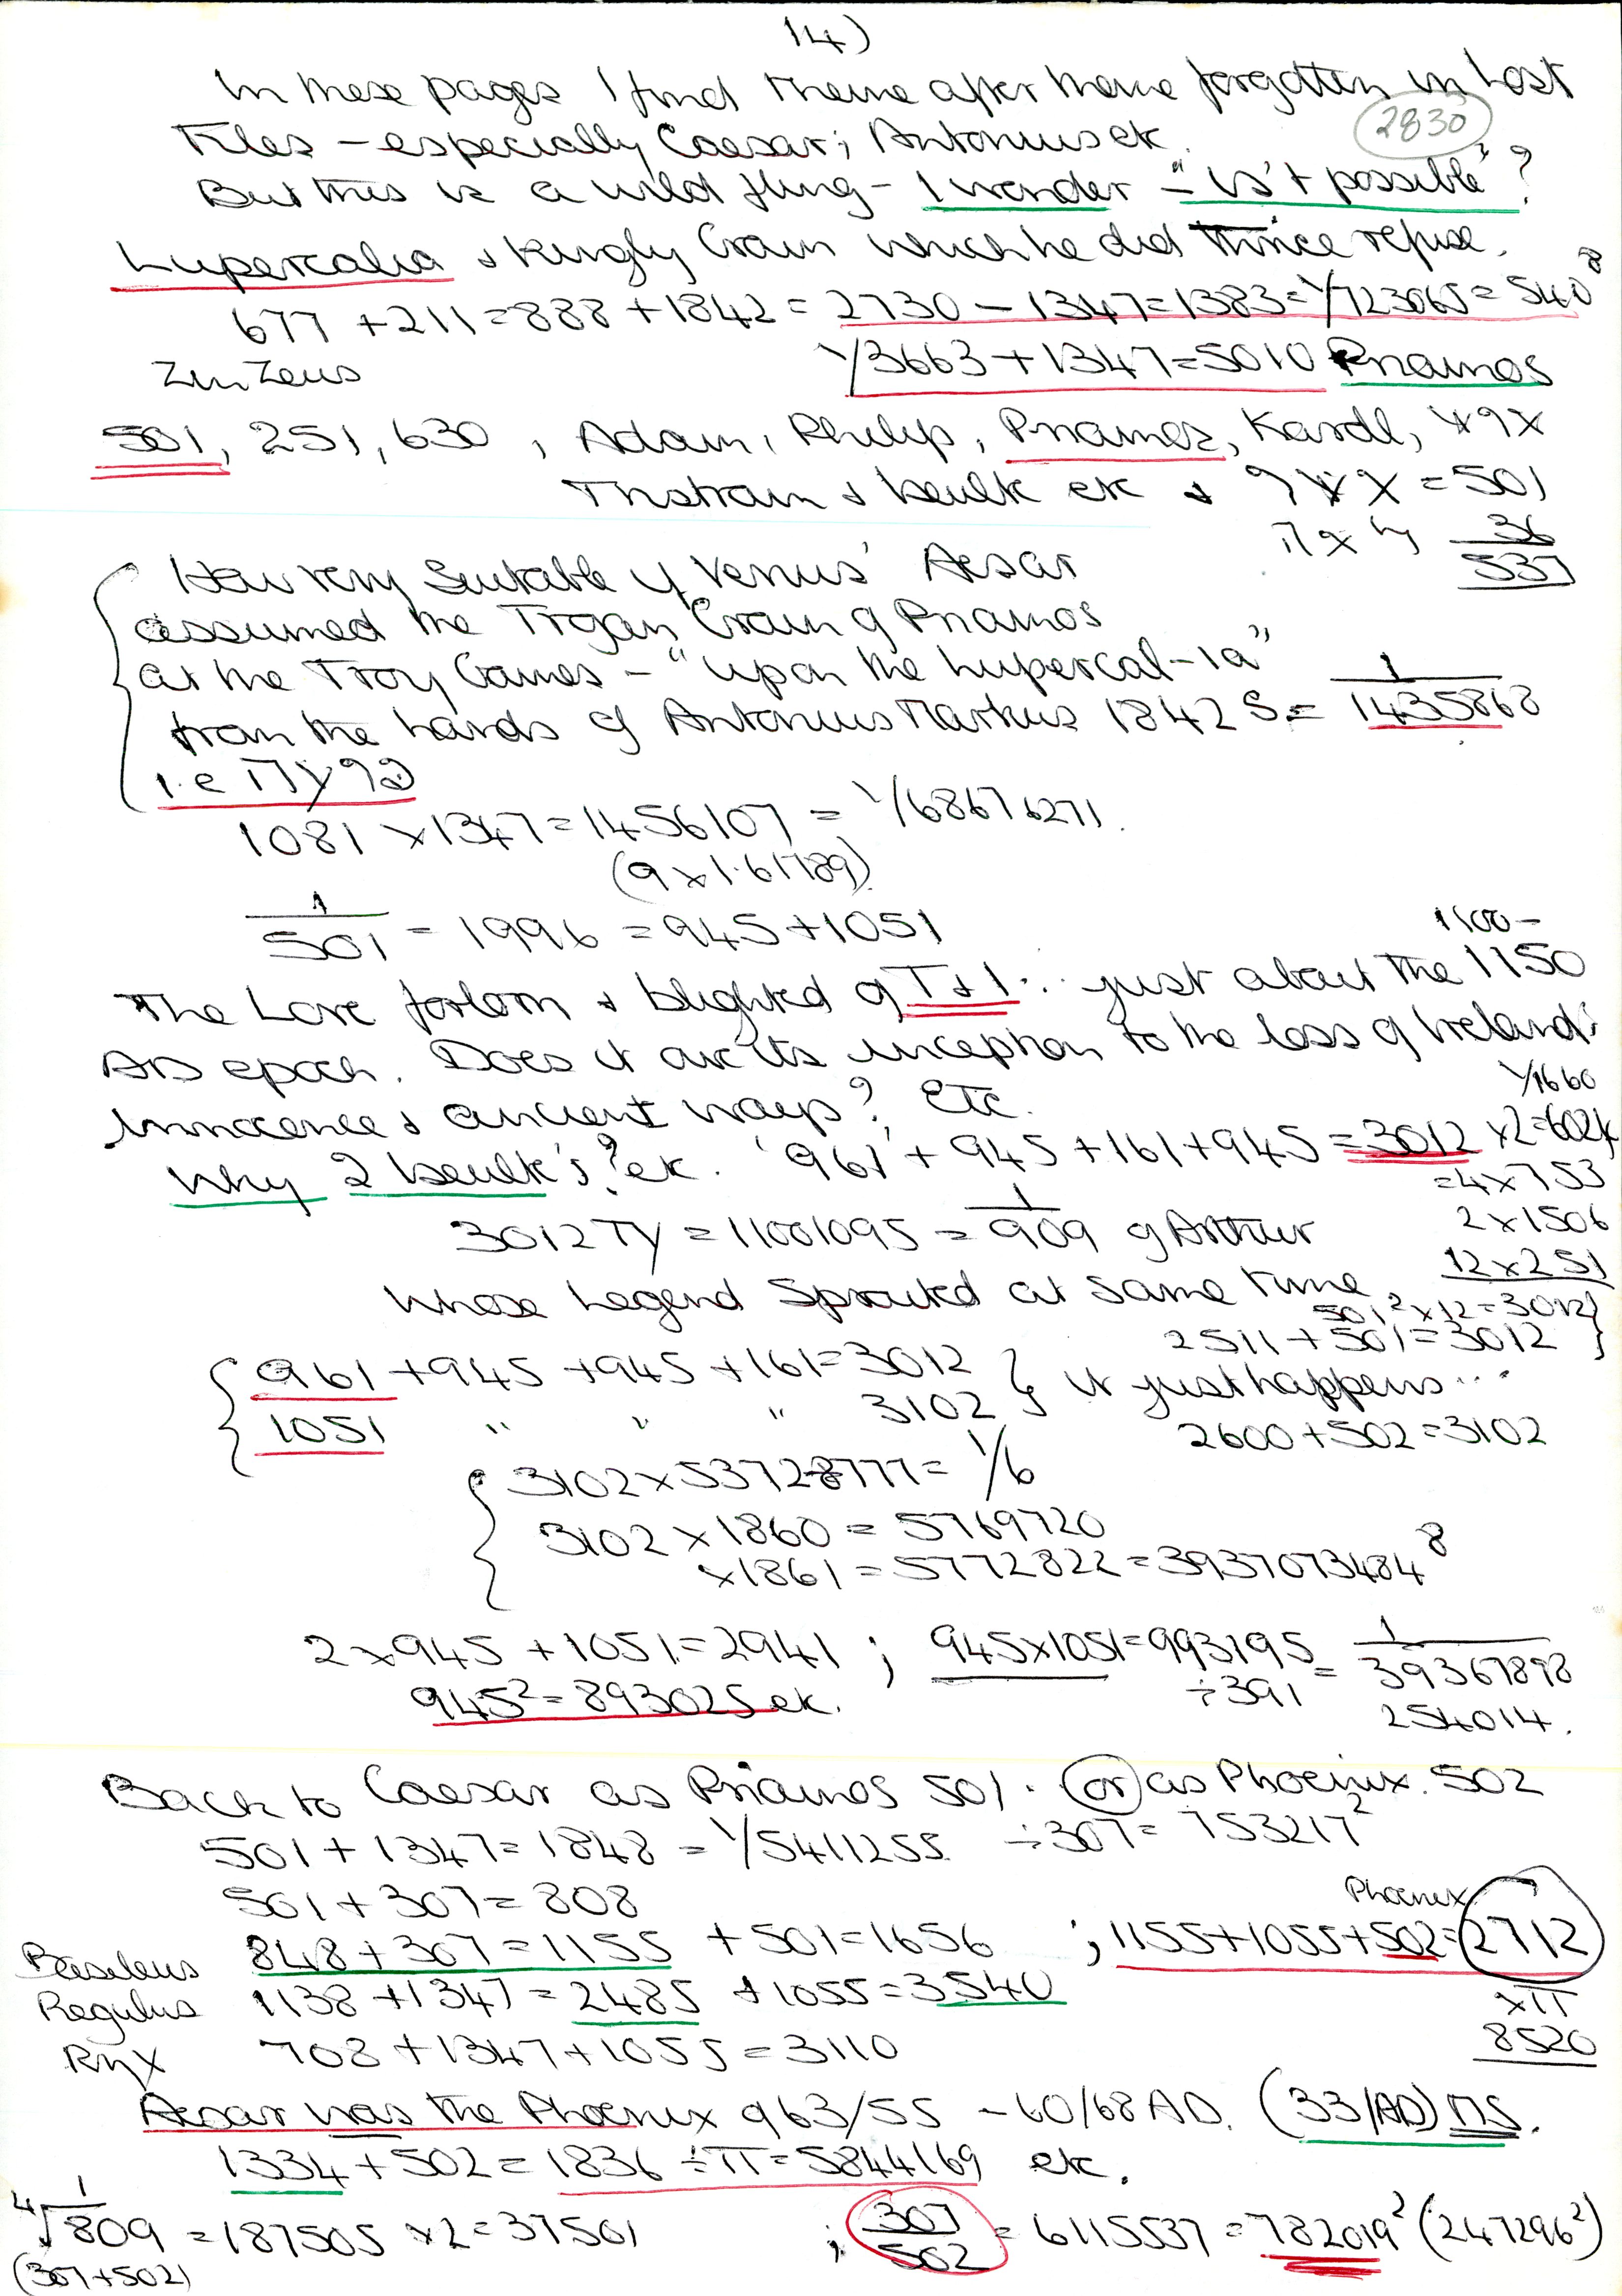 14)
In these pages I find theme after theme forgotten in Lost
Files – especially Caesar; Antonius etc.
2830
But this is a wild thing – I wonder – "is't possible"?
Lupercalia & Kingly Crown which he did thrice refuse.
677 + 211 = 888 + 1842 = 2730 – 1347 = 1383 = 1/723065 = 540⁸
Zin Zeus
1/3663 + 1347 = 5010 Priamos
501, 251, 630, Adam, Philip, Priamos, Kardl,
Tristram & Iseult etc & = 501
36
537
How very Suitable if Venus' Aesar
assumed the Trojan Crown of Priamos
at the Troy Games – "upon the Lupercal-ia"
from the hands of Antonius Markus 1842 S. = 1/1435868
i.e
1081 x 1347 = 1456107 = 1/68676271.
(9 x 1.61789)
1/501 = 1996 = 945 + 1051
1100 –
The Love forlorn & blighted of T & I... just about the 1150
AD epoch. Does it owe its inception to the loss of Ireland's
innocence & ancient ways? Etc.
1/1660
Why 2 Iseult's? etc. '961' + 945 + 161 + 945 = 3012 x 2 = 6024
= 4 x 753
3012 Ty = 11001095 = 1/909 of Arthur
2 x 1506
12 x 251
whose Legend Sprouted at same time
501² x 12 = 3012
2511 + 501 = 3012
961 + 945 + 945 + 161 = 3012 } it just happens...
1051 " " " 3102
2600 + 502 = 3102
3102 x 53728777 = 1/6
3102 x 1860 = 5769720
x 1861 = 5772822 = 3937073484⁸
2 x 945 + 1051 = 2941 ; 945 x 1051 = 993195 = 1/39367898
945² = 893025 etc.
÷ 391
254014.
Back to Caesar as Priamos 501. or as Phoenix. 502
501 + 1347 = 1848 = 1/5411255 ÷ 307 = 753217²
501 + 307 = 808
Phoenix
Basileus 848 + 307 = 1155 + 501 = 1656 ; 1155 + 1055 + 502 = 2712
Regulus 1138 + 1347 = 2485 + 1055 = 3540
xπ
8520
RhX 708 + 1347 + 1055 = 3110
Aesar was the Phoenix 963/55 – 60/68 AD. (33/AD) ns.
1334 + 502 = 1836 ÷ π = 5844169 etc.
⁴√1/809 = 187505 x 2 = 37501 ; 307/502 = 6115537 = 782019² (247296²)
(307 + 502)